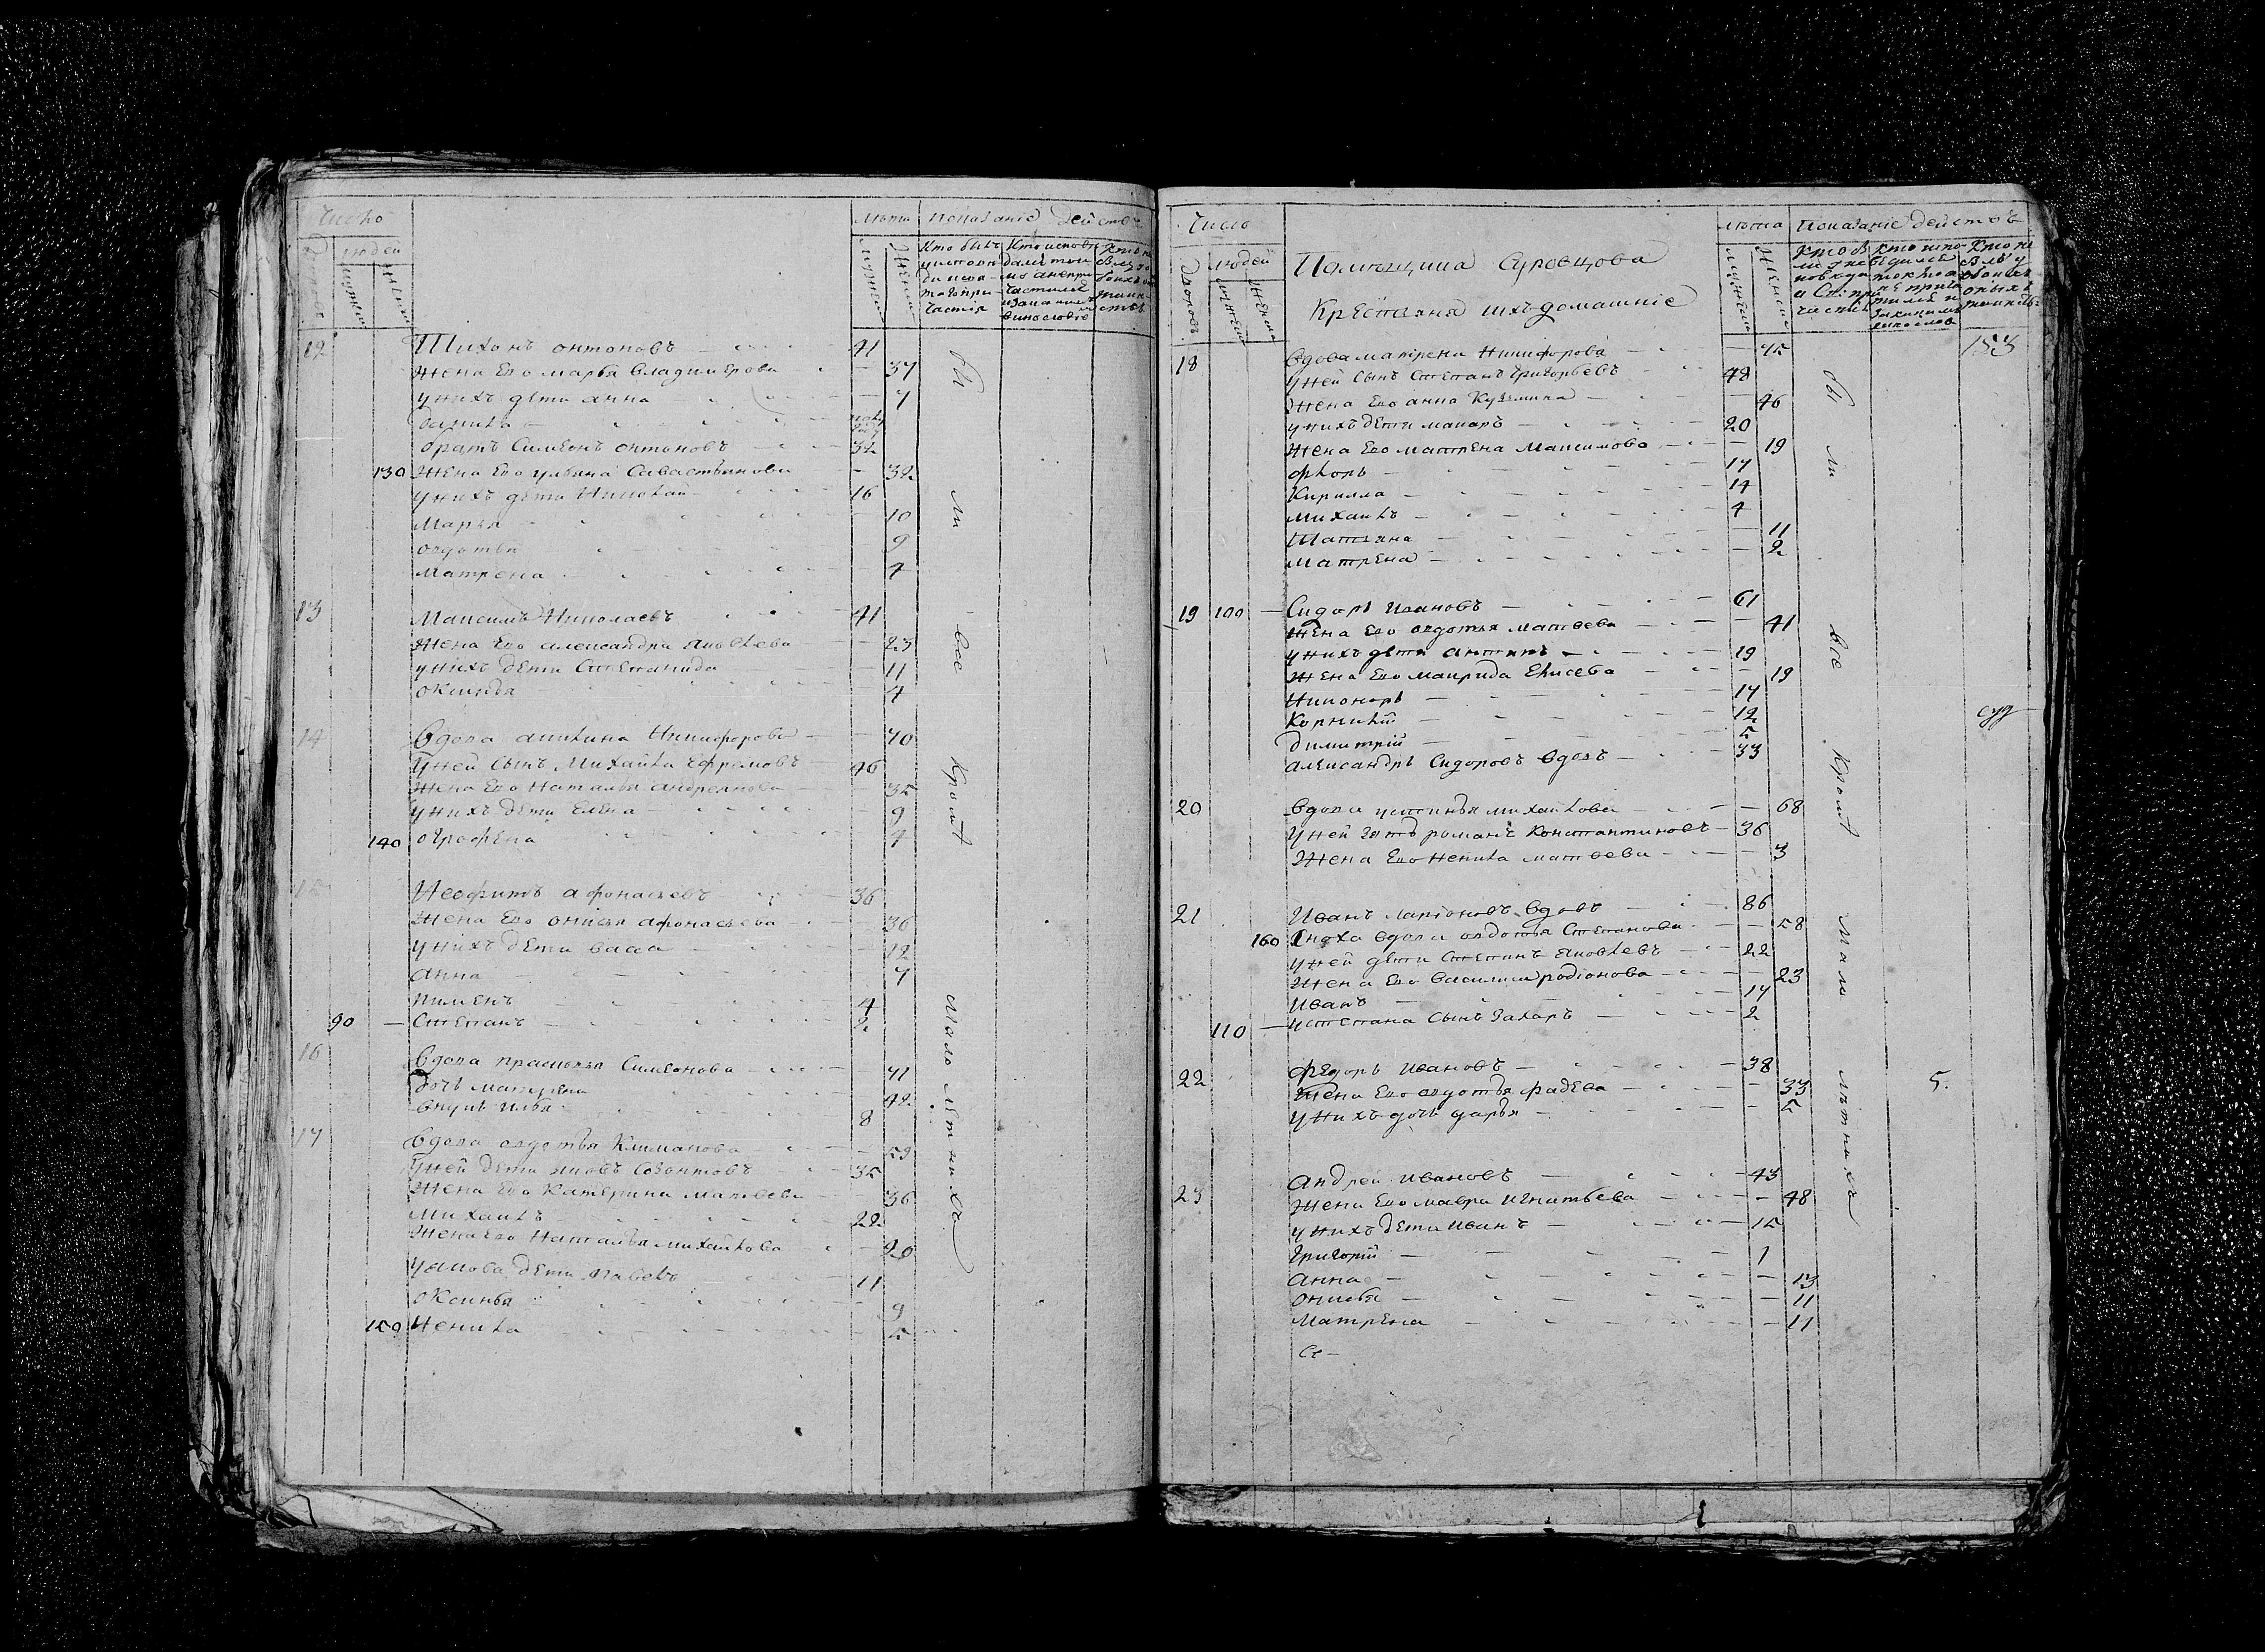 Число
Людей
Мужеск
Женска
Лѣта
Показаніе действъ
12 Тихонъ онтоновъ 41
Жена Его марья владимерова 37
унихъ дѣти анна 7
данила
братъ Симеонъ онтоновъ 32
130 Жена Его ульяна Савастьянова 32
унихъ дѣти Николай 16
Марья 10
овдотья 9
Матрена 4
13 Максимъ Николаевъ 41
Жена Его александра яковлева 23
унихъ дети Степанида 11
оксинья 4
14 вдова акилина Никифорова 70
Уней Сынъ Михайла Ефремовъ 46
Жена Его Наталья андреянова 35
Унихъ дети Елена 9
140 ографена 4
15 Неофитъ афонасьевъ 36
Жена Его онисья афонасьева 36
Унихъ дети васса 12
анна 7
пименъ 4
90 Степанъ 2
16 вдова прасковья Симеонова 41
дочь матрена 12
внукъ илья 8
17 вдова овдотья Климанова 59
Уней дети яковъ Созонтовъ 35
Жена Его Катерина матвеева 36
Михаилъ 22
Жена его Наталья михайлова 20
уякова дети павелъ 11
оксинья 9
150 Ненила 5
бы
ли
все
Кроме
мало
лѣтнихъ
Число
дворовъ
Людей
мужеск
женска
Помѣщица Суровцова
Крестьяна ихъ домашніе
лѣта
Показаніе действъ
153
18 вдова матрена Никифорова 75
Уней Сынъ Степанъ Григорьевъ 48
Жена Его анна Кузмина 46
унихъ дети макаръ 20
Жена Его матрена Максимова 19
флоръ 17
Кирилла 14
михаилъ 4
Татьяна 11
матрена 2
19 100 Сидоръ ивановъ 61
Жена Его овдотья матвеева 41
унихъ дѣти антипъ 19
Жена Его маврида Елисева 19
Никоноръ 17
Корнилій 12
димитрій 5
александръ Сидоровъ вдовъ 33
суд
20 вдова устинья михайлова 68
уней зять романъ Константиновъ 36
Жена Его Ненила матвеева 3
21 Иванъ ларіоновъ вдовъ 86
160 Сноха вдова овдотья Степанова 58
уней дѣти Степанъ яковлевъ 22
Жена Его василиса родіонова 23
Иванъ 17
110 уСтепана Сынъ Захаръ 2
22 Федоръ ивановъ 38
Жена Его овдотья фадеева 33
5.
унихъ дочь дарья 5
23 андрей ивановъ 43
Жена Его мавра игнатьева 48
унихъ дети иванъ 15
Григорій 1
анна 13
онисья 11
матрена 11
Се
бы
ли
все
Кроме
мало
лѣтнихъ